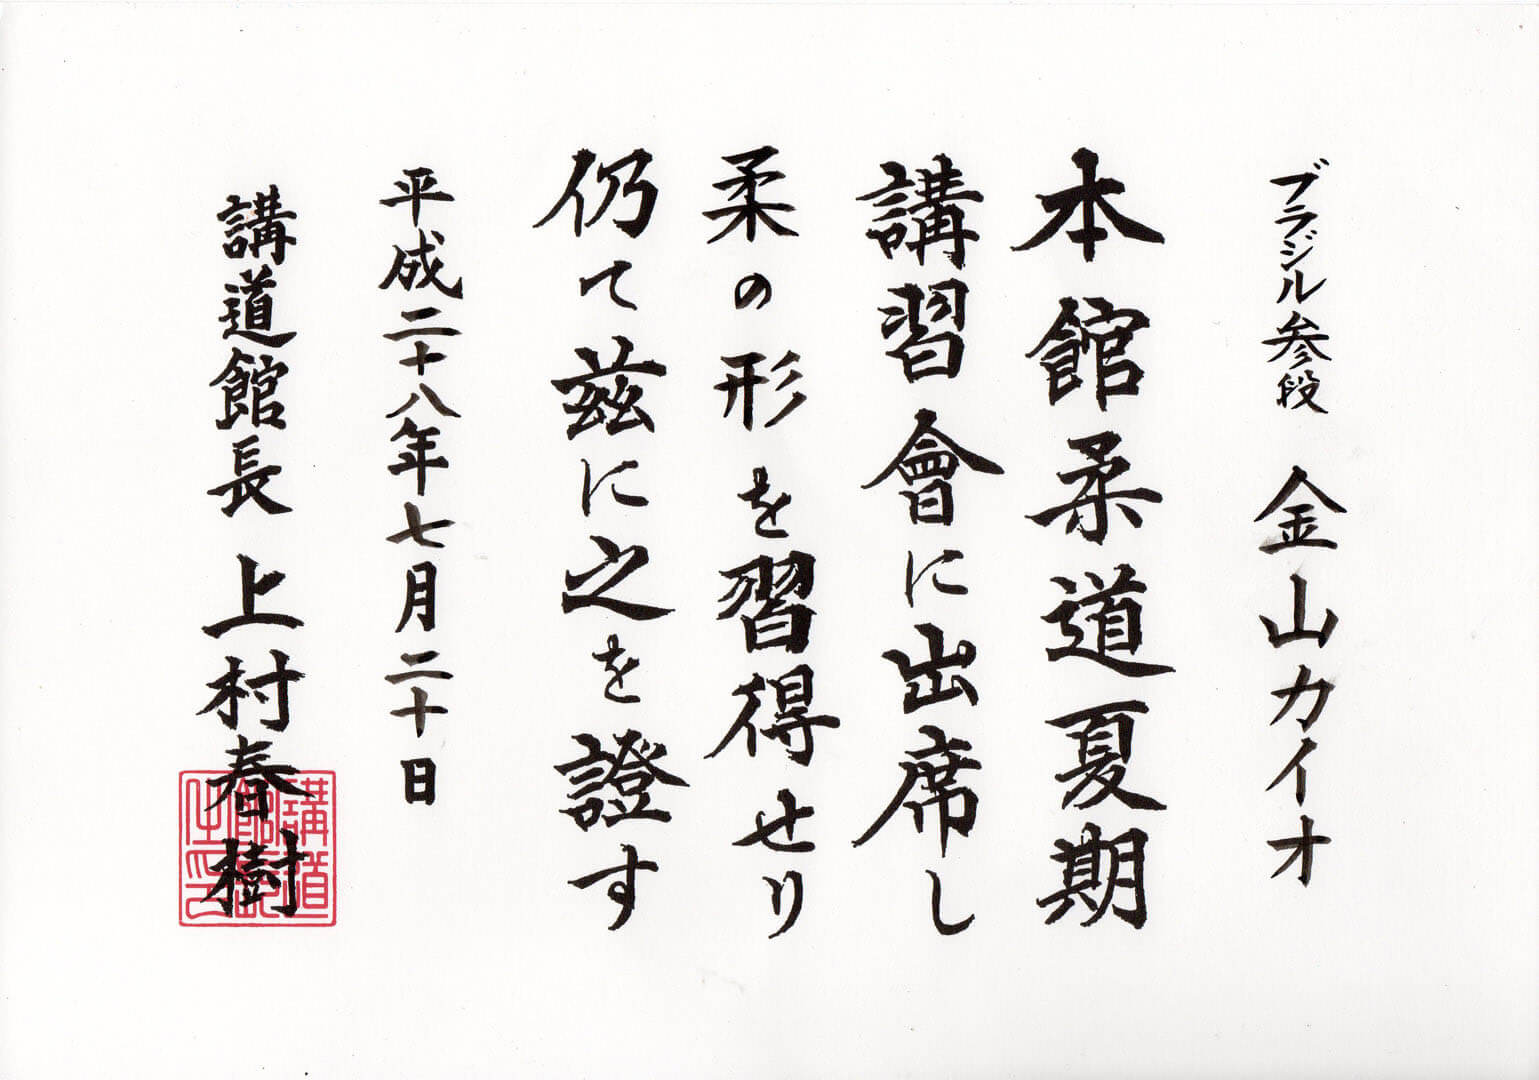 ブラジル参段 金山カイオ
本館柔道夏期
講習會に出席し
柔の形を習得せり
仍て茲に之を證す
平成二十八年七月二十日
講道館長 上村春樹